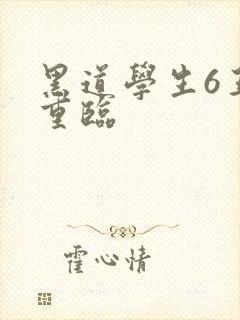 黑道學生6
重臨
霍心情